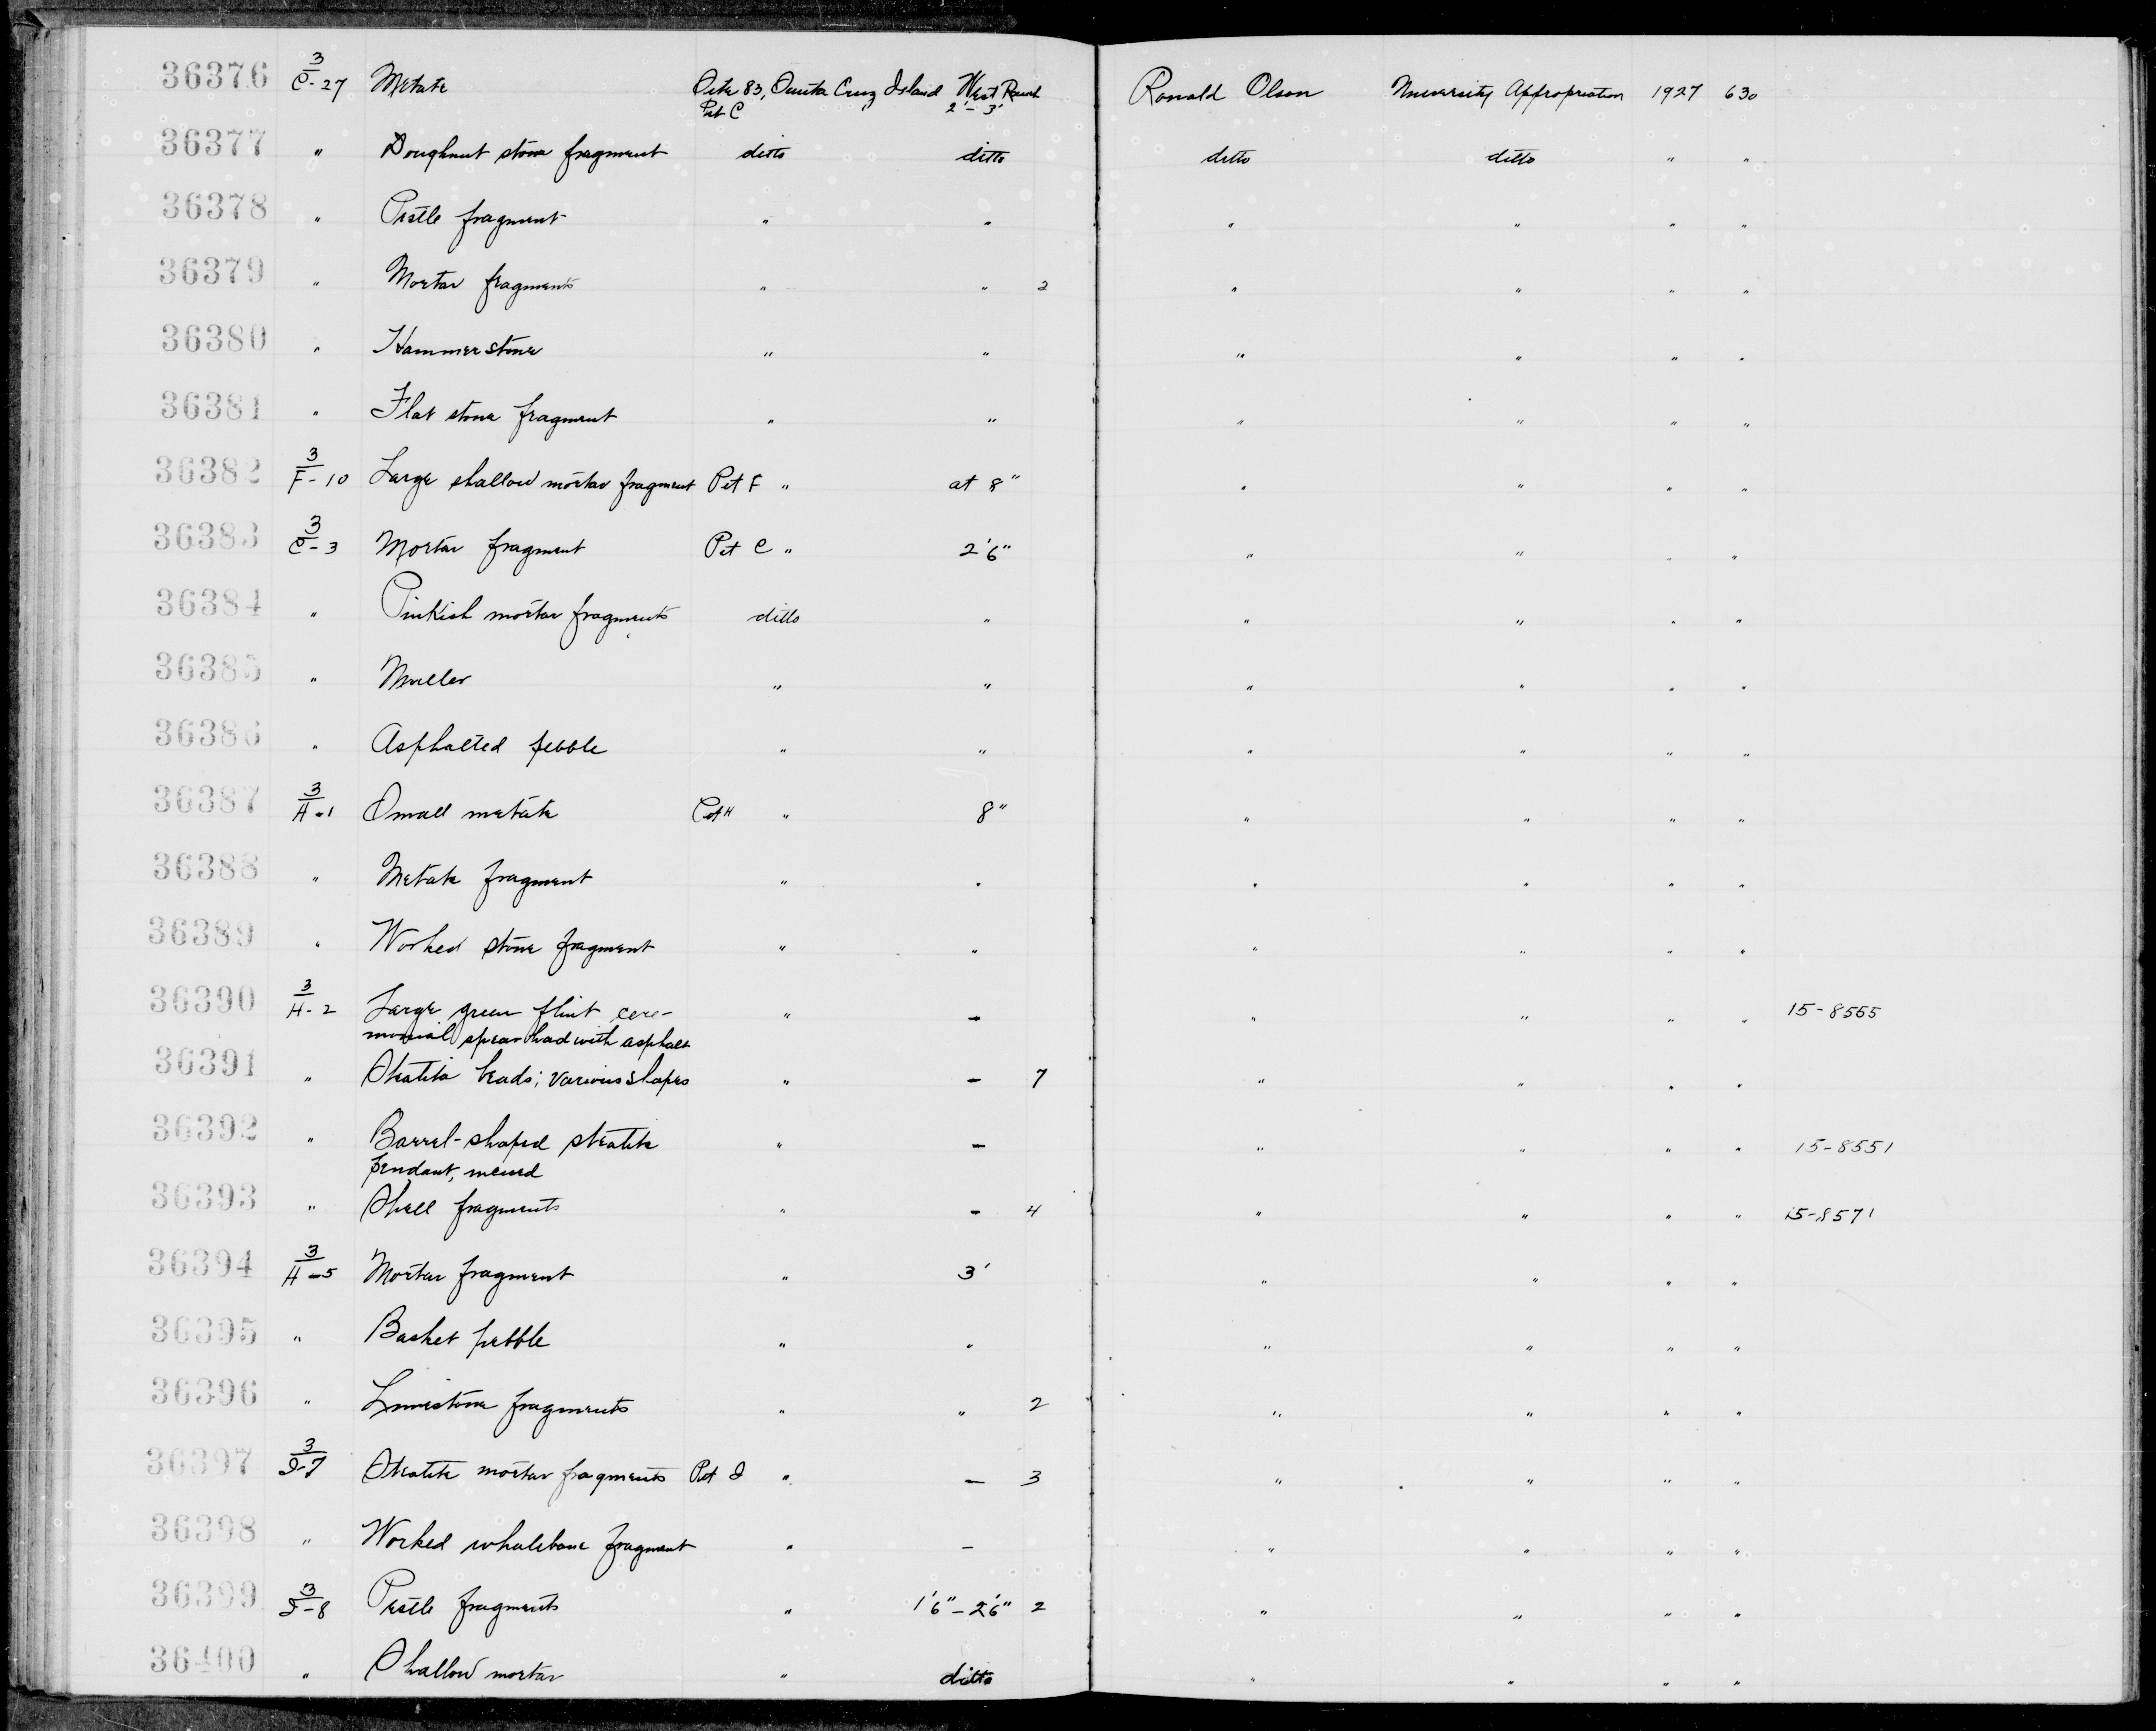 36376 3/C-27 Metate Site 83, Santa Cruz Island West Ranch Ronald Olson University Appropriation 1927 630
Pit C " 2'-3'
36377 " Doughnut stone fragment ditto ditto ditto ditto " "
36378 " Pestle fragment " " " " " "
36379 " Mortar fragments " " 2 " " " "
36380 " Hammerstone " " " " " "
36381 " Flat stone fragment " " " " " "
36382 3/F-10 Large shallow mortar fragment Pit F " at 8" " " " "
36383 3/C-3 Mortar fragment Pit C " 2'6" " " " "
36384 " Pinkish mortar fragments ditto " " " " "
36385 " Muller " " " " " "
36386 " Asphalted pebble " " " " " "
36387 3/H-1 Small metate Pit H " 8" " " " "
36388 " Metate fragment " " " " " "
36389 " Worked stone fragment " " " " " "
36390 3/H-2 Large green flint cere- " - " " " " 15-8555
monial spearhead with asphalt
36391 " Steatite beads; various shapes " - 7 " " " "
36392 " Barrel-shaped steatite " - " " " " 15-8551
pendant, incised
36393 " Shell fragments " - 4 " " " " 15-8571
36394 3/H-5 Mortar fragment " 3' " " " "
36395 " Basket pebble " " " " " "
36396 " Limestone fragments " " 2 " " " "
36397 3/I-7 Steatite mortar fragments Pit I " - 3 " " " "
36398 " Worked whalebone fragment " - " " " "
36399 3/I-8 Pestle fragments " 1'6"-2'6" 2 " " " "
36400 " Shallow mortar " ditto " " " "